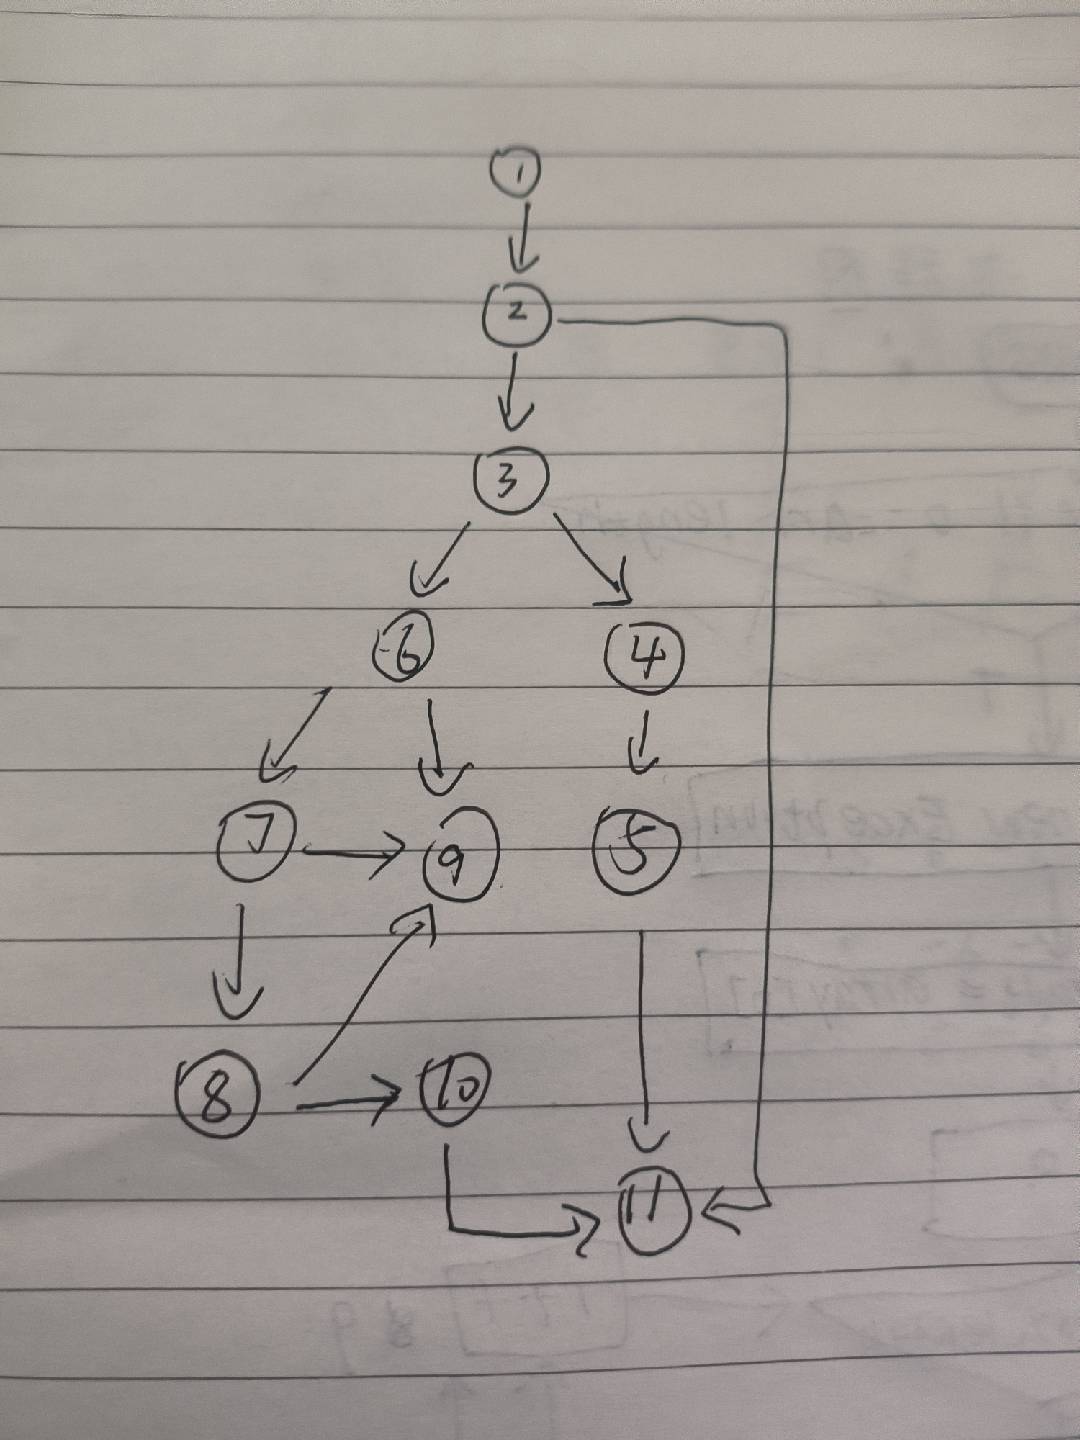 1
2
3
6 4
7 9 5
8 10
11